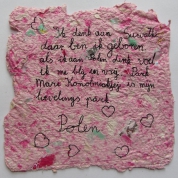 Ik denk aan Suwałki
daar ben ik geboren
als ik aan Polen denk voel
ik me blij en vrij Park
Marii Konopnickiej is mijn
lievelings park
Polen